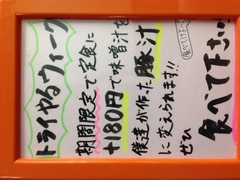 トライやるウィーク
期間限定で定食に
+180円で味噌汁を
僕達が作った豚汁
に変えられます!!
ぜひ
食べて下さい